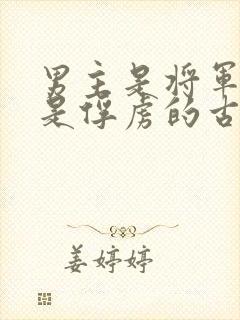 男主是将軍
是俘虏的古
姜婷婷